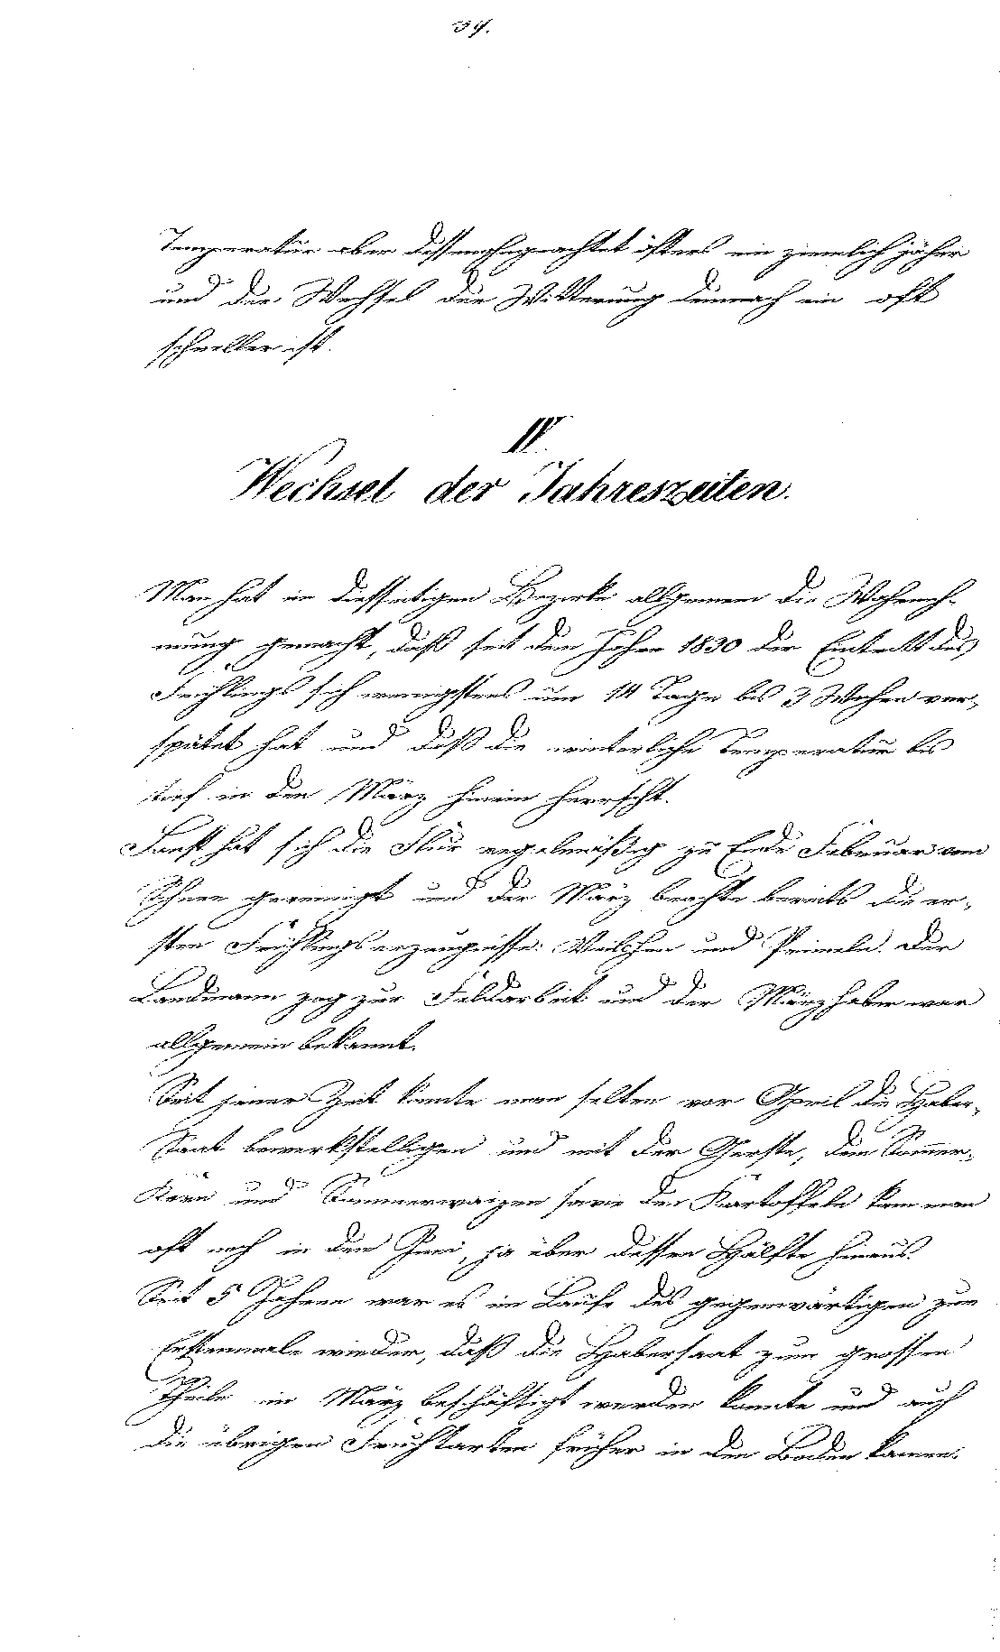 34.
Temperatur aber dessenohngeachtet öfters ein ziemlich jäher
und der Wechsel der Witterung demnach ein oft
schneller ist.
IV.
Wechsel der Jahreszeiten.
Man hat im diesseitigen Bezirke allgemein die Wahrneh-
mung gemacht, daß seit dem Jahre 1830 der Eintritt des
Frühlings sich wenigstens um 14 Tage bis 3 Wochen ver-
spätet hat und daß die winterliche Temperatur bis
tief in den März hinein herrscht.
Sonst hat sich die Flur regelmäßig zu Ende Februar vom
Schnee gereinigt und der März brachte bereits die er-
sten Frühlingserzeugnisse: Veilchen und Primeln. Der
Landmann zog zur Feldarbeit und der Märzhaber war
allgemein bekannt.
Seit jener Zeit konnte man selten vor April die Haber-
Saat bewerkstelligen und mit der Gerste, dem Sommer-
Korn und Sommerwaizen sowie den Kartoffeln kam man
oft noch in den Juni, ja über dessen Hälfte hinaus.
Seit 5 Jahren war es im Laufe des gegenwärtigen zum
Erstenmale wieder, daß die Habersaat zum grossen
Theile im März beschäftigt werden konnte und auch
die übrigen Fruchtarten früher in den Boden kamen.